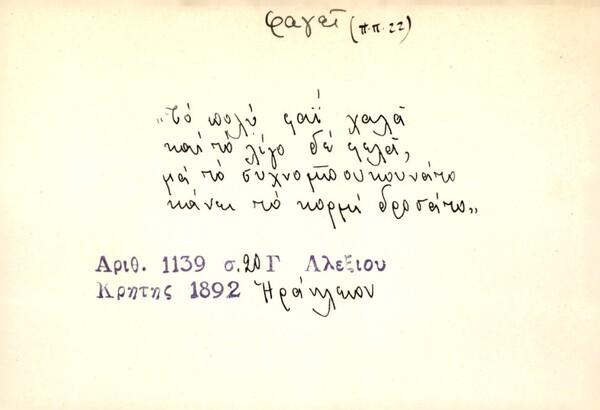 φαγεῖ (π.π. 22)
"Τό πολύ φαΐ χαλᾶ
καί τό λίγο δέ φελᾶ,
μά τό συχνομπουκουνάτο
κάνει τό κορμί δροσάτο"
Αριθ. 1139 σ. 20 Γ Αλεξιου
Κρητης 1892 Ἡράκλειον